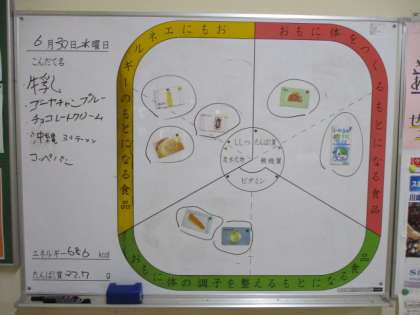 6月30日水曜日
こんだて名
牛乳
・ゴーヤチャンプルー
チョコレートクリーム
・沖縄
・コッペパン
エネルギー 686 kcal
たんぱく質 27.7 g
エネルギーのもとになる食品
おもに体をつくるもとになる食品
おもに体の調子を整えるもとになる食品
ししつ
たんぱく質
炭水化物
無機質
ビタミン